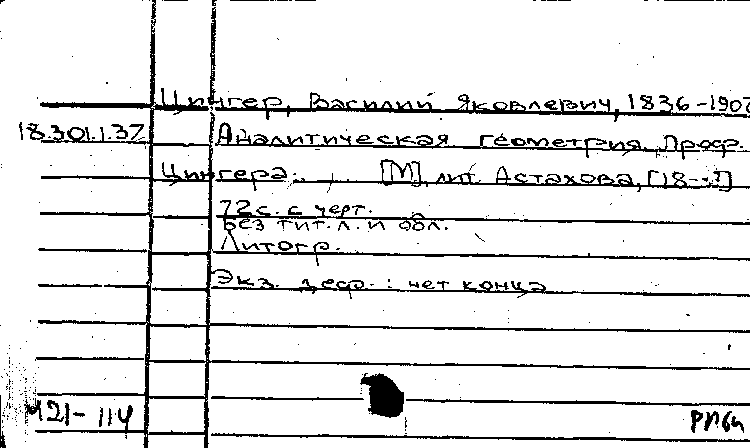 Цингер, Василий Яковлевич, 1836-1907
18.301.1.37 Аналитическая геометрия Проф.
Цингера. [М], лит. Астахова, [18-?]
72 с. с черт.
Без тит. л. и обл.
Литогр.
Экз. деф.: нет конца
М21-114